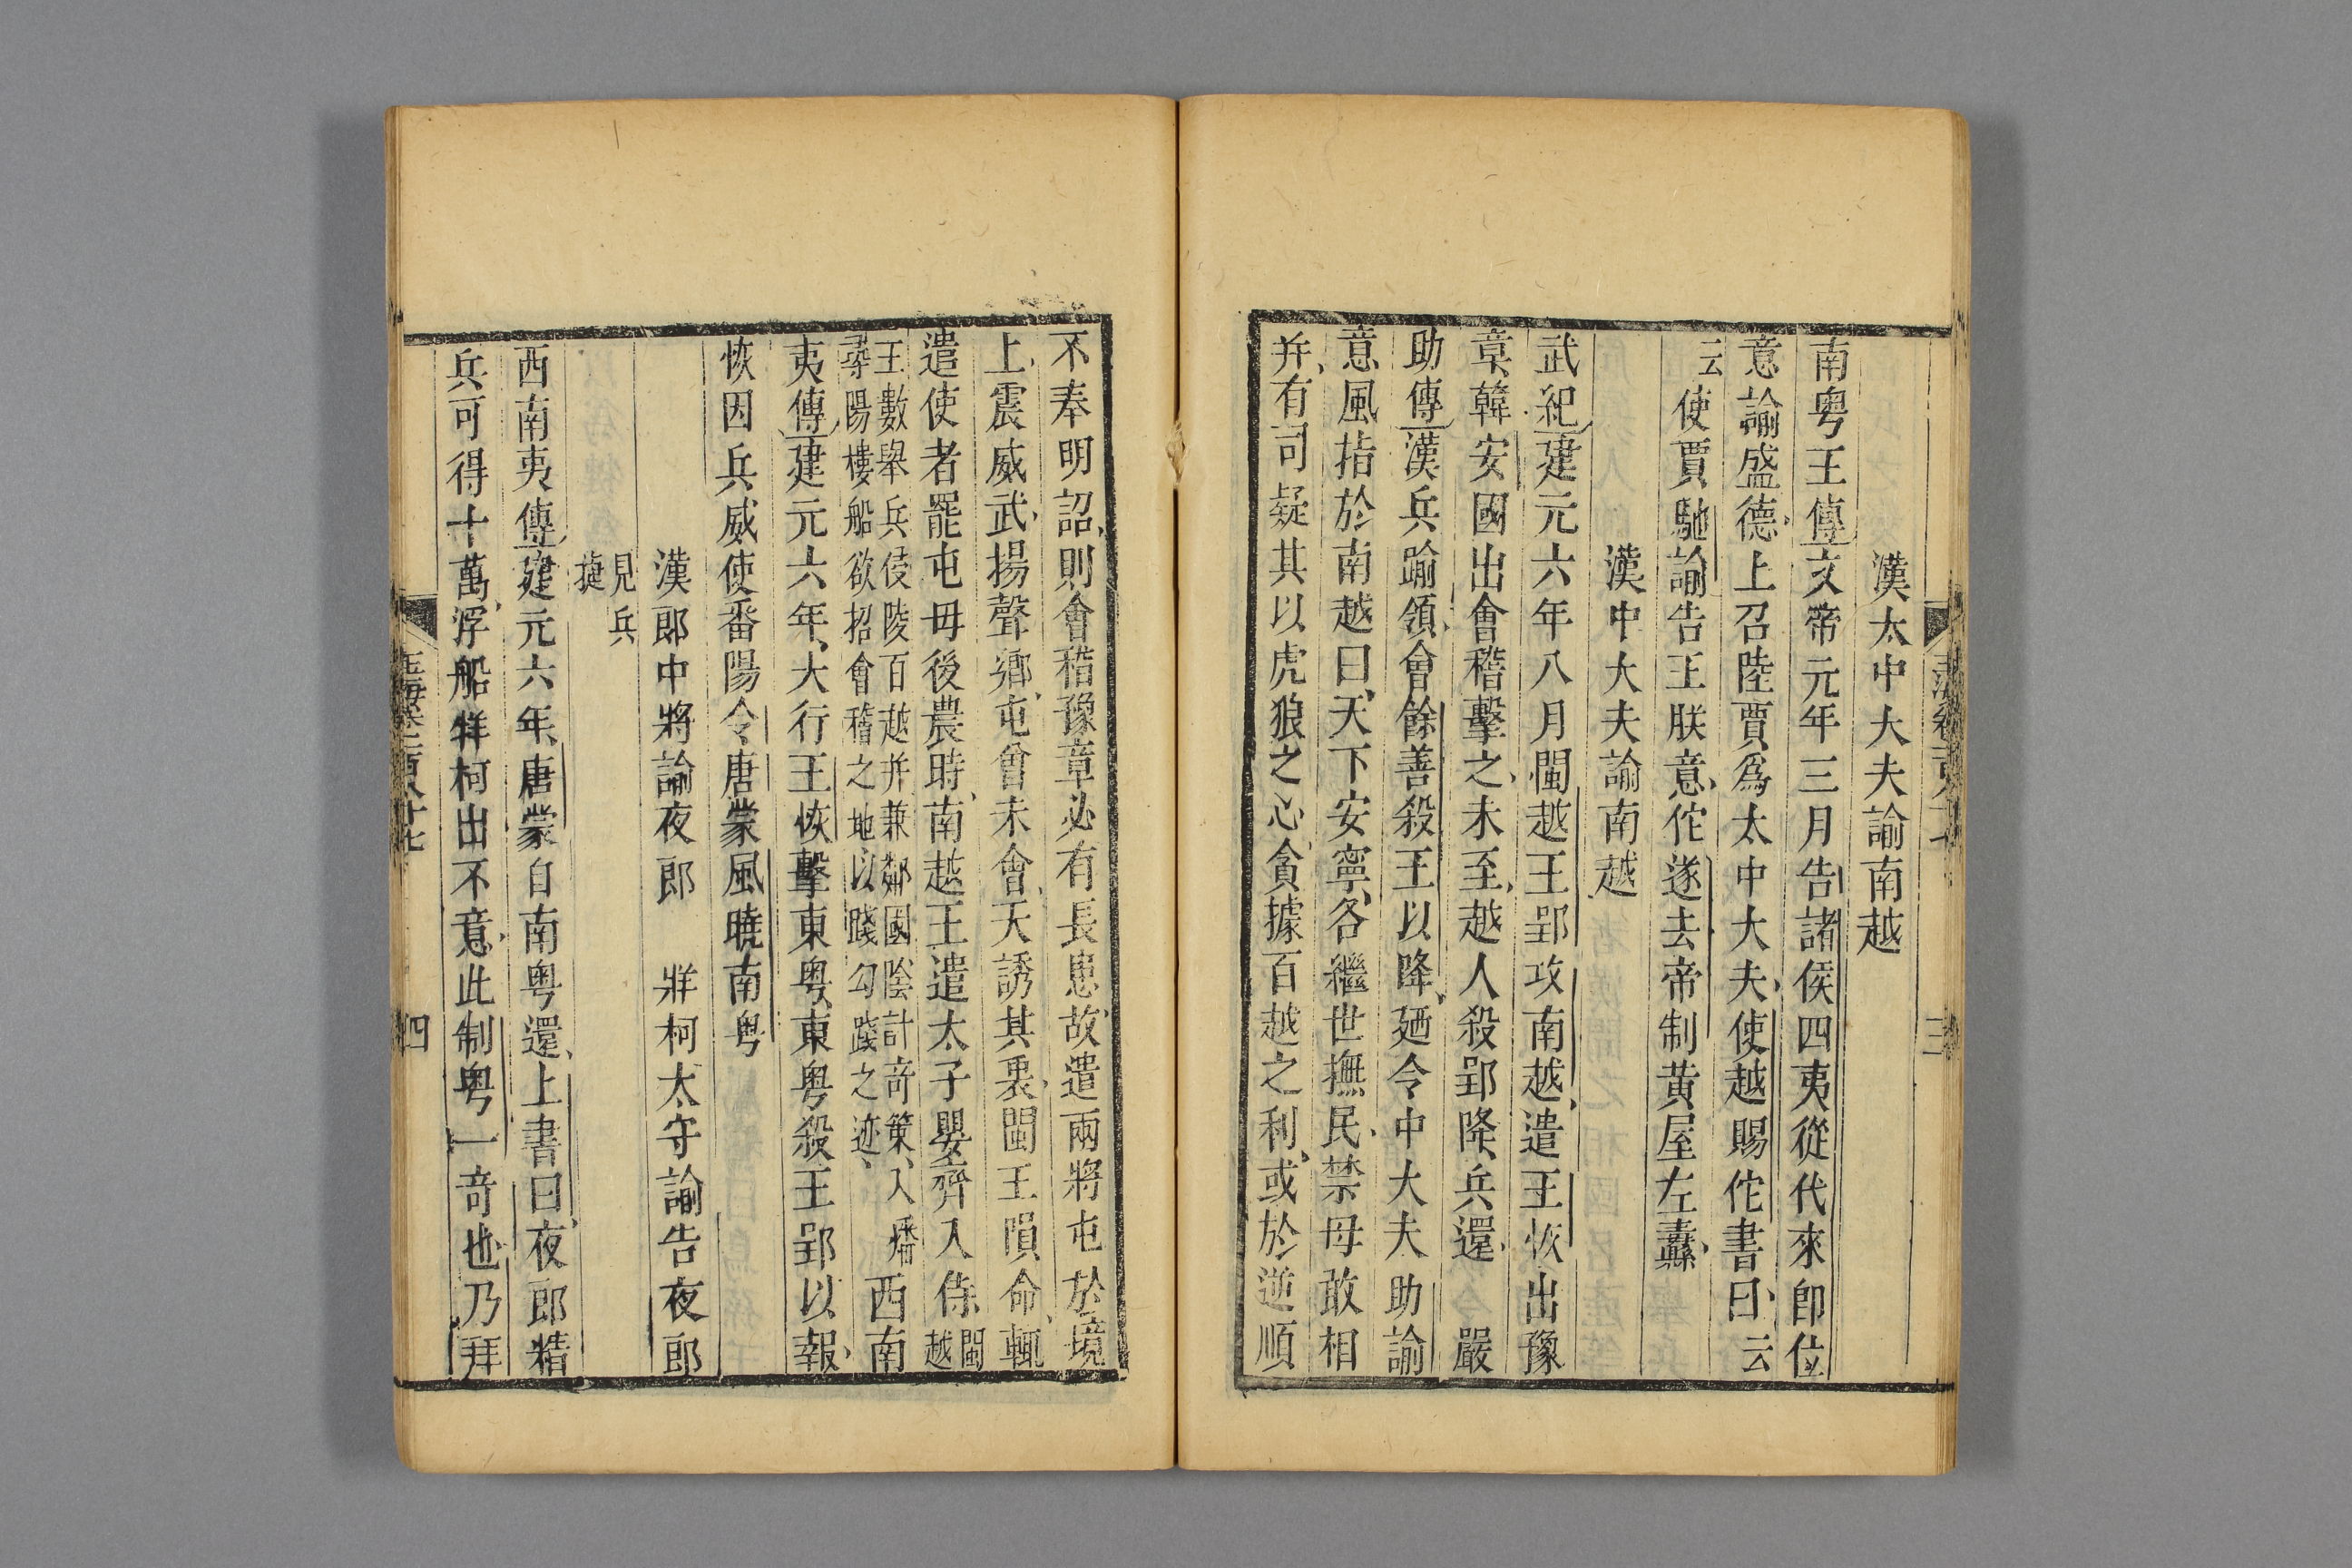 漢太中大夫諭南越
南粤王傳文帝元年三月告諸侯四夷從代來卽位
意諭盛德上召陸賈爲太中大夫使越賜佗書曰云
云使賈馳諭告王朕意佗遂去帝制黄屋左纛
漢中大夫諭南越
武紀建元六年八月閩越王郢攻南越遣王恢出豫
章韓安國出會稽擊之未至越人殺郢降兵還 嚴
助傳漢兵踰領會餘善殺王以降廼令中大夫助諭
意風指於南越曰天下安寧各繼世撫民禁毋敢相
并有司疑其以虎狼之心貪據百越之利或於逆順
不奉明詔則會稽豫章必有長患故遣兩將屯於境
上震威武揚聲鄉屯曾未會天誘其衷閩王隕命輒
遣使者罷屯毋後農時南越王遣太子嬰齊入侍閩越
王數舉兵侵陵百越并兼鄰國陰計奇策入燔
尋陽樓船欲招會稽之地以踐勾踐之迹
西南
夷傳建元六年大行王恢擊東粤東粤殺王郢以報
恢因兵威使番陽令唐蒙風曉南粤
漢郎中將諭夜郎 牂柯太守諭告夜郎
見兵
捷
西南夷傳建元六年唐蒙自南粤還上書曰夜郎精
兵可得十萬浮船牂柯出不意此制粤一奇也乃拜
玉海卷一百八十七
四